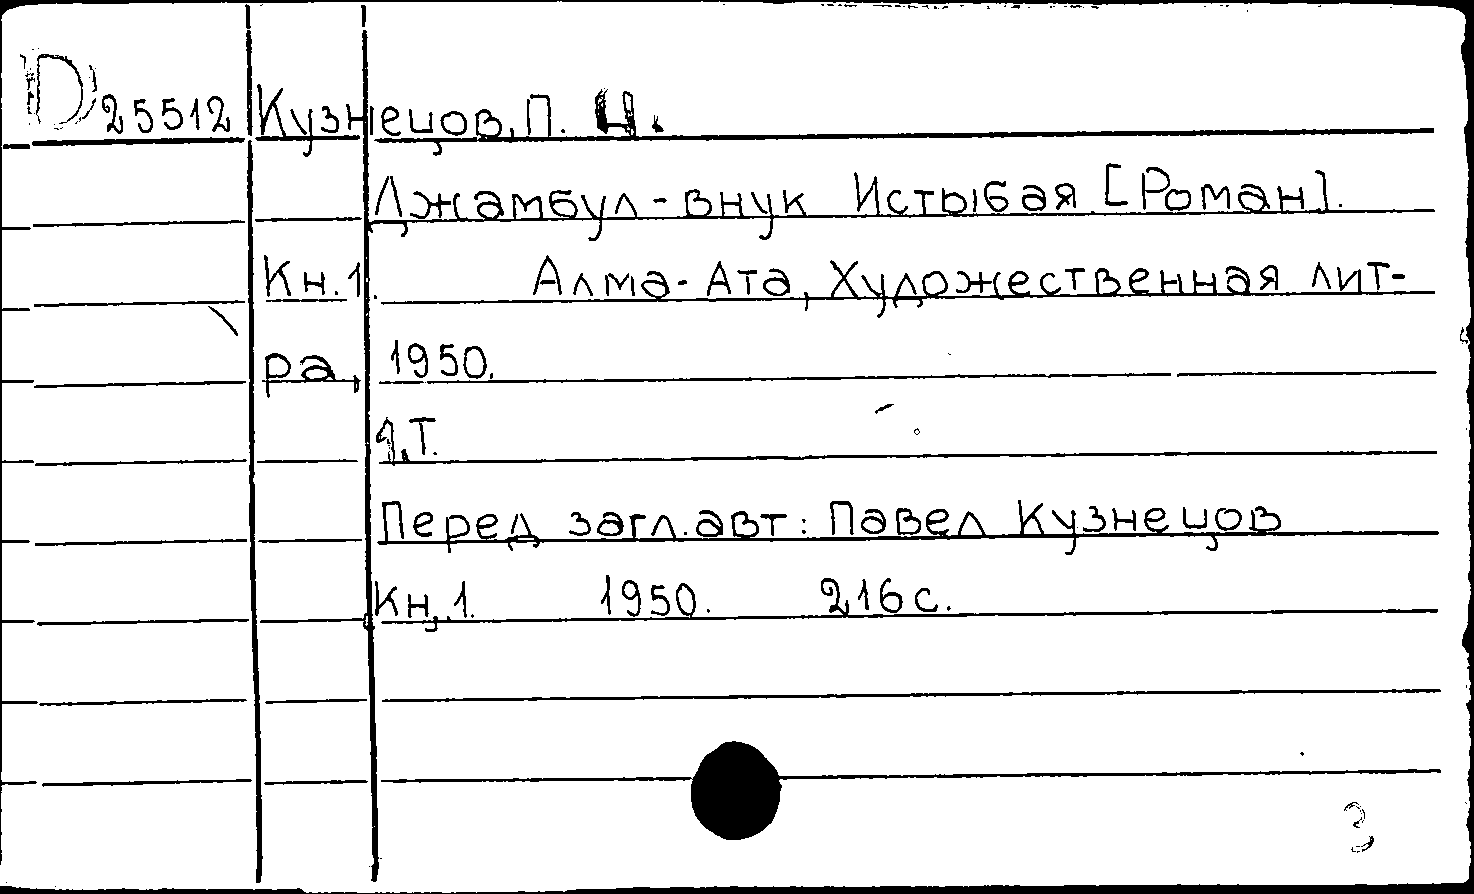 D 25512 Кузнецов, П. Н.
Джамбул - внук Истыбая [Роман].
Кн. 1. Алма-Ата, Художественная лит-
ра, 1950.
1.т.
Перед загл. авт: Павел Кузнецов
Кн. 1. 1950. 216 с.
3